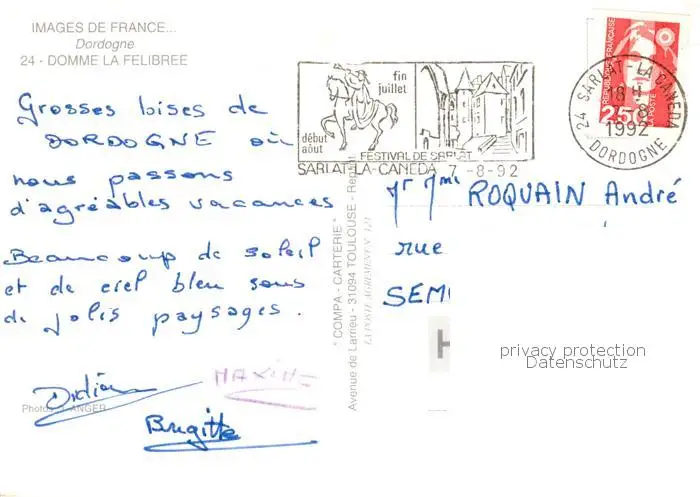 IMAGES DE FRANCE...
Dordogne
24 - DOMME LA FELIBREE
Grosses bises de
DORDOGNE où
nous passons
d'agréables vacances
Beaucoup de soleil
et de ciel bleu sous
de jolis paysages.
Didier
MAXIME
Brigitte
Photos J. ANGER
fin
juillet
début
août
FESTIVAL DE SARLAT
SARLAT-LA-CANEDA 7-8-92
24 SARLAT-LA CANEDA
18 H
7-8
1992
DORDOGNE
REPUBLIQUE FRANÇAISE
LA POSTE
2,50
" COMPA - CARTERIE "
Avenue de Larrieu - 31094 TOULOUSE -
LA POSTE AGREMENT N° 321
Mr Mme ROQUAIN André
rue
SEM
H
privacy protection
Datenschutz